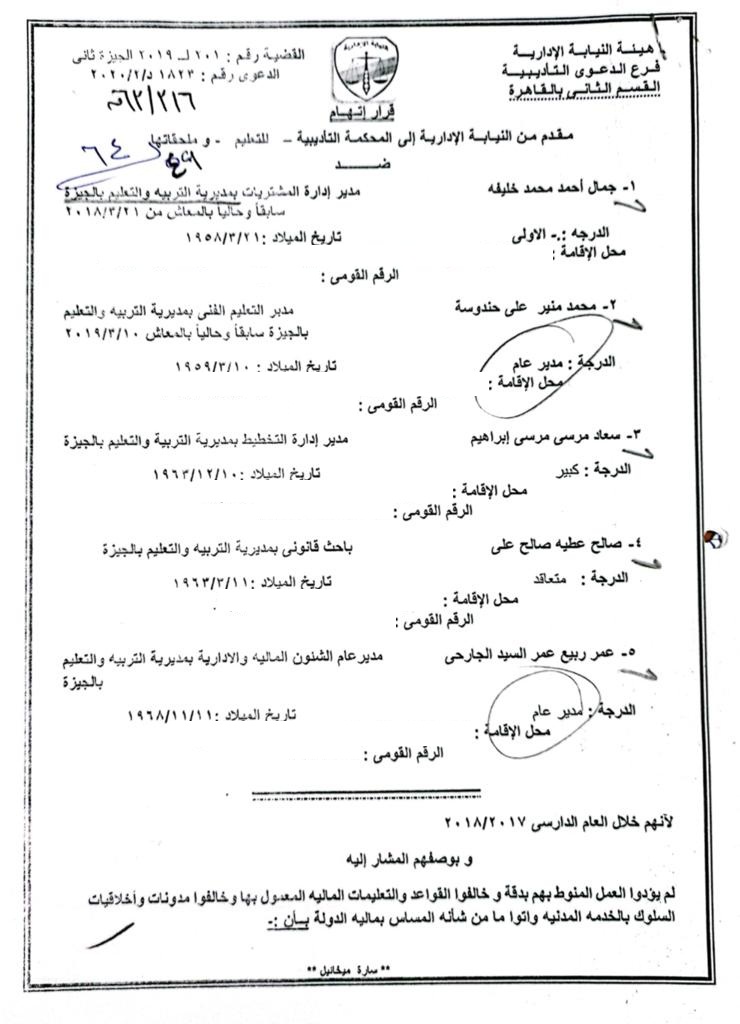 هيئة النيابة الإدارية
فرع الدعوى التأديبية
القسم الثانى بالقاهرة
القضية رقم : ٢٠١ لـ ٢٠١٩ الجيزة ثانى
الدعوى رقم : ١٨٢٣ د/٢/٢٠٢٠
النيابة الإدارية
قرار إتهام
مقدم من النيابة الإدارية إلى المحكمة التأديبية – للتعليم - و ملحقاتها
٦٤
٤٩
ضــــد
١- جمال أحمد محمد خليفه مدير إدارة المشتريات بمديرية التربيه والتعليم بالجيزة
سابقاً وحالياً بالمعاش من ٢٠١٨/٣/٢١
الدرجه :- الاولى تاريخ الميلاد :١٩٥٨/٣/٢١
محل الإقامة :
الرقم القومى :
٢- محمد منير على حندوسة مدير التعليم الفنى بمديرية التربيه والتعليم
بالجيزة سابقاً وحالياً بالمعاش ٢٠١٩/٣/١٠
الدرجة : مدير عام تاريخ الميلاد : ١٩٥٩/٣/١٠
محل الإقامة :
الرقم القومى :
٣- سعاد مرسى مرسى إبراهيم مدير إدارة التخطيط بمديرية التربية والتعليم بالجيزة
الدرجة : كبير تاريخ الميلاد :١٩٦٣/١٢/١٠
محل الإقامة :
الرقم القومى :
٤- صالح عطيه صالح على باحث قانونى بمديرية التربيه والتعليم بالجيزة
الدرجة : متعاقد تاريخ الميلاد :١٩٦٣/٣/١١
محل الإقامة :
الرقم القومى :
٥- عمر ربيع عمر السيد الجارحى مديرعام الشئون الماليه والادارية بمديرية التربيه والتعليم
بالجيزة
الدرجة : مدير عام تاريخ الميلاد :١٩٦٨/١١/١١
محل الإقامة :
الرقم القومى :
لآنهم خلال العام الدارسى ٢٠١٨/٢٠١٧
و بوصفهم المشار إليه
لم يؤدوا العمل المنوط بهم بدقة و خالفوا القواعد والتعليمات الماليه المعمول بها و خالفوا مدونات وأخلاقيات
السلوك بالخدمه المدنيه واتوا ما من شأنه المساس بماليه الدولة بــأن :-
** سارة ميخائيل **